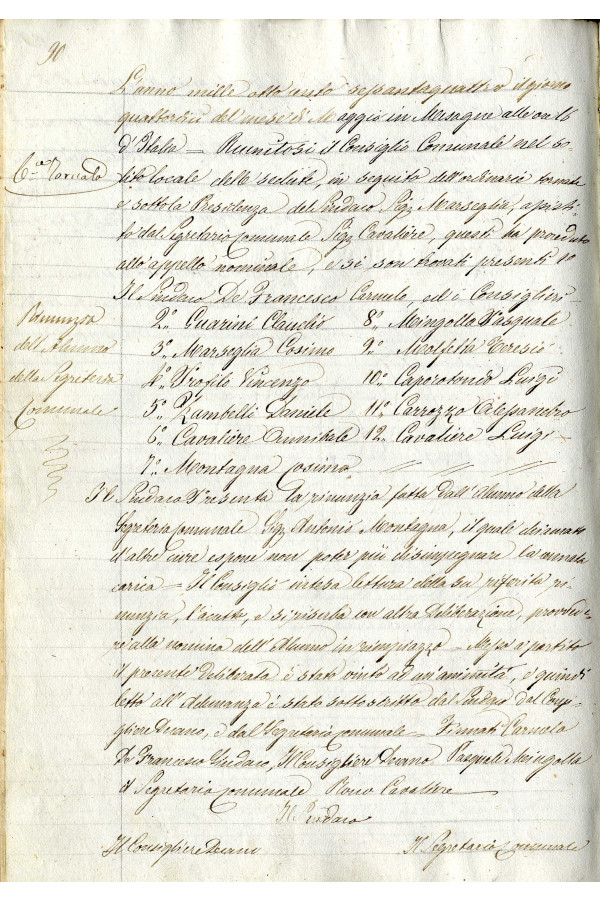 90
L'anno mille otto cento sessantaquattro il giorno
quattordici del mese di Maggio in Mesagne alle ore 16
d'Italia = Riunitosi il Consiglio Comunale nel so-
6.a Tornata
lito locale delle sedute, in seguito dell'ordinaria tornata
e sotto la Presidenza del Sindaco Sigr Marseglia, assisti-
to dal Segretario Comunale Sigr Cavaliere, questi ha proceduto
allo appello nominale, e si son trovati presenti
Il Sindaco De Francesco Carmelo, ed i Consiglieri
Rinunzia
dell'Alunno
della Segreteria
Comunale
2.o Guarini Claudio 8.o Mingolla Pasquale
3.o Marseglia Cosimo 9.o Molfetta Teresio
4.o Profilo Vincenzo 10.o Caporotondo Luigi
5.o Zambelli Daniele 11.o Carrozzo Alessandro
6.o Cavaliere Annibale 12.o Cavaliere Luigi
7.o Montagna Cosimo
Il Sindaco Presenta la rinunzia fatta dall'Alunno della
Segreteria Comunale Sigr Antonio Montagna, il quale chiamato
d'altre cure espone non poter più disimpegnare la menzionata
carica = Il Consiglio intesa lettura della su riferita ri-
nunzia, l'accetta, e si riserba con altra Deliberazione, provvede-
re alla nomina dell'Alunno in rimpiazzo = Messo a partito
il presente Deliberato è stato vinto ad un'animità, e quindi
letto all'Adunanza è stato sottoscritto dal Sindaco dal Consi-
gliere Decano, e dal Segretario Comunale = Firmati Carmelo
De Francesco Sindaco, Il Consigliere Decano Pasquale Mingolla
il Segretario Comunale Cavaliere
Il Sindaco
Il Consigliere Decano Il Segretario Comunale